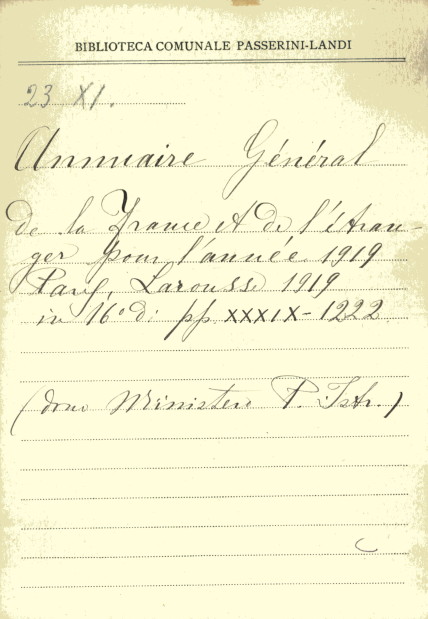 BIBLIOTECA COMUNALE PASSERINI-LANDI
23 XI.
Annuaire Général
de la France et de l'étran-
ger pour l'année 1919
Paris, Larousse 1919
in 16° di pp. XXXIX-1222
(dono Ministero P. Istr.)